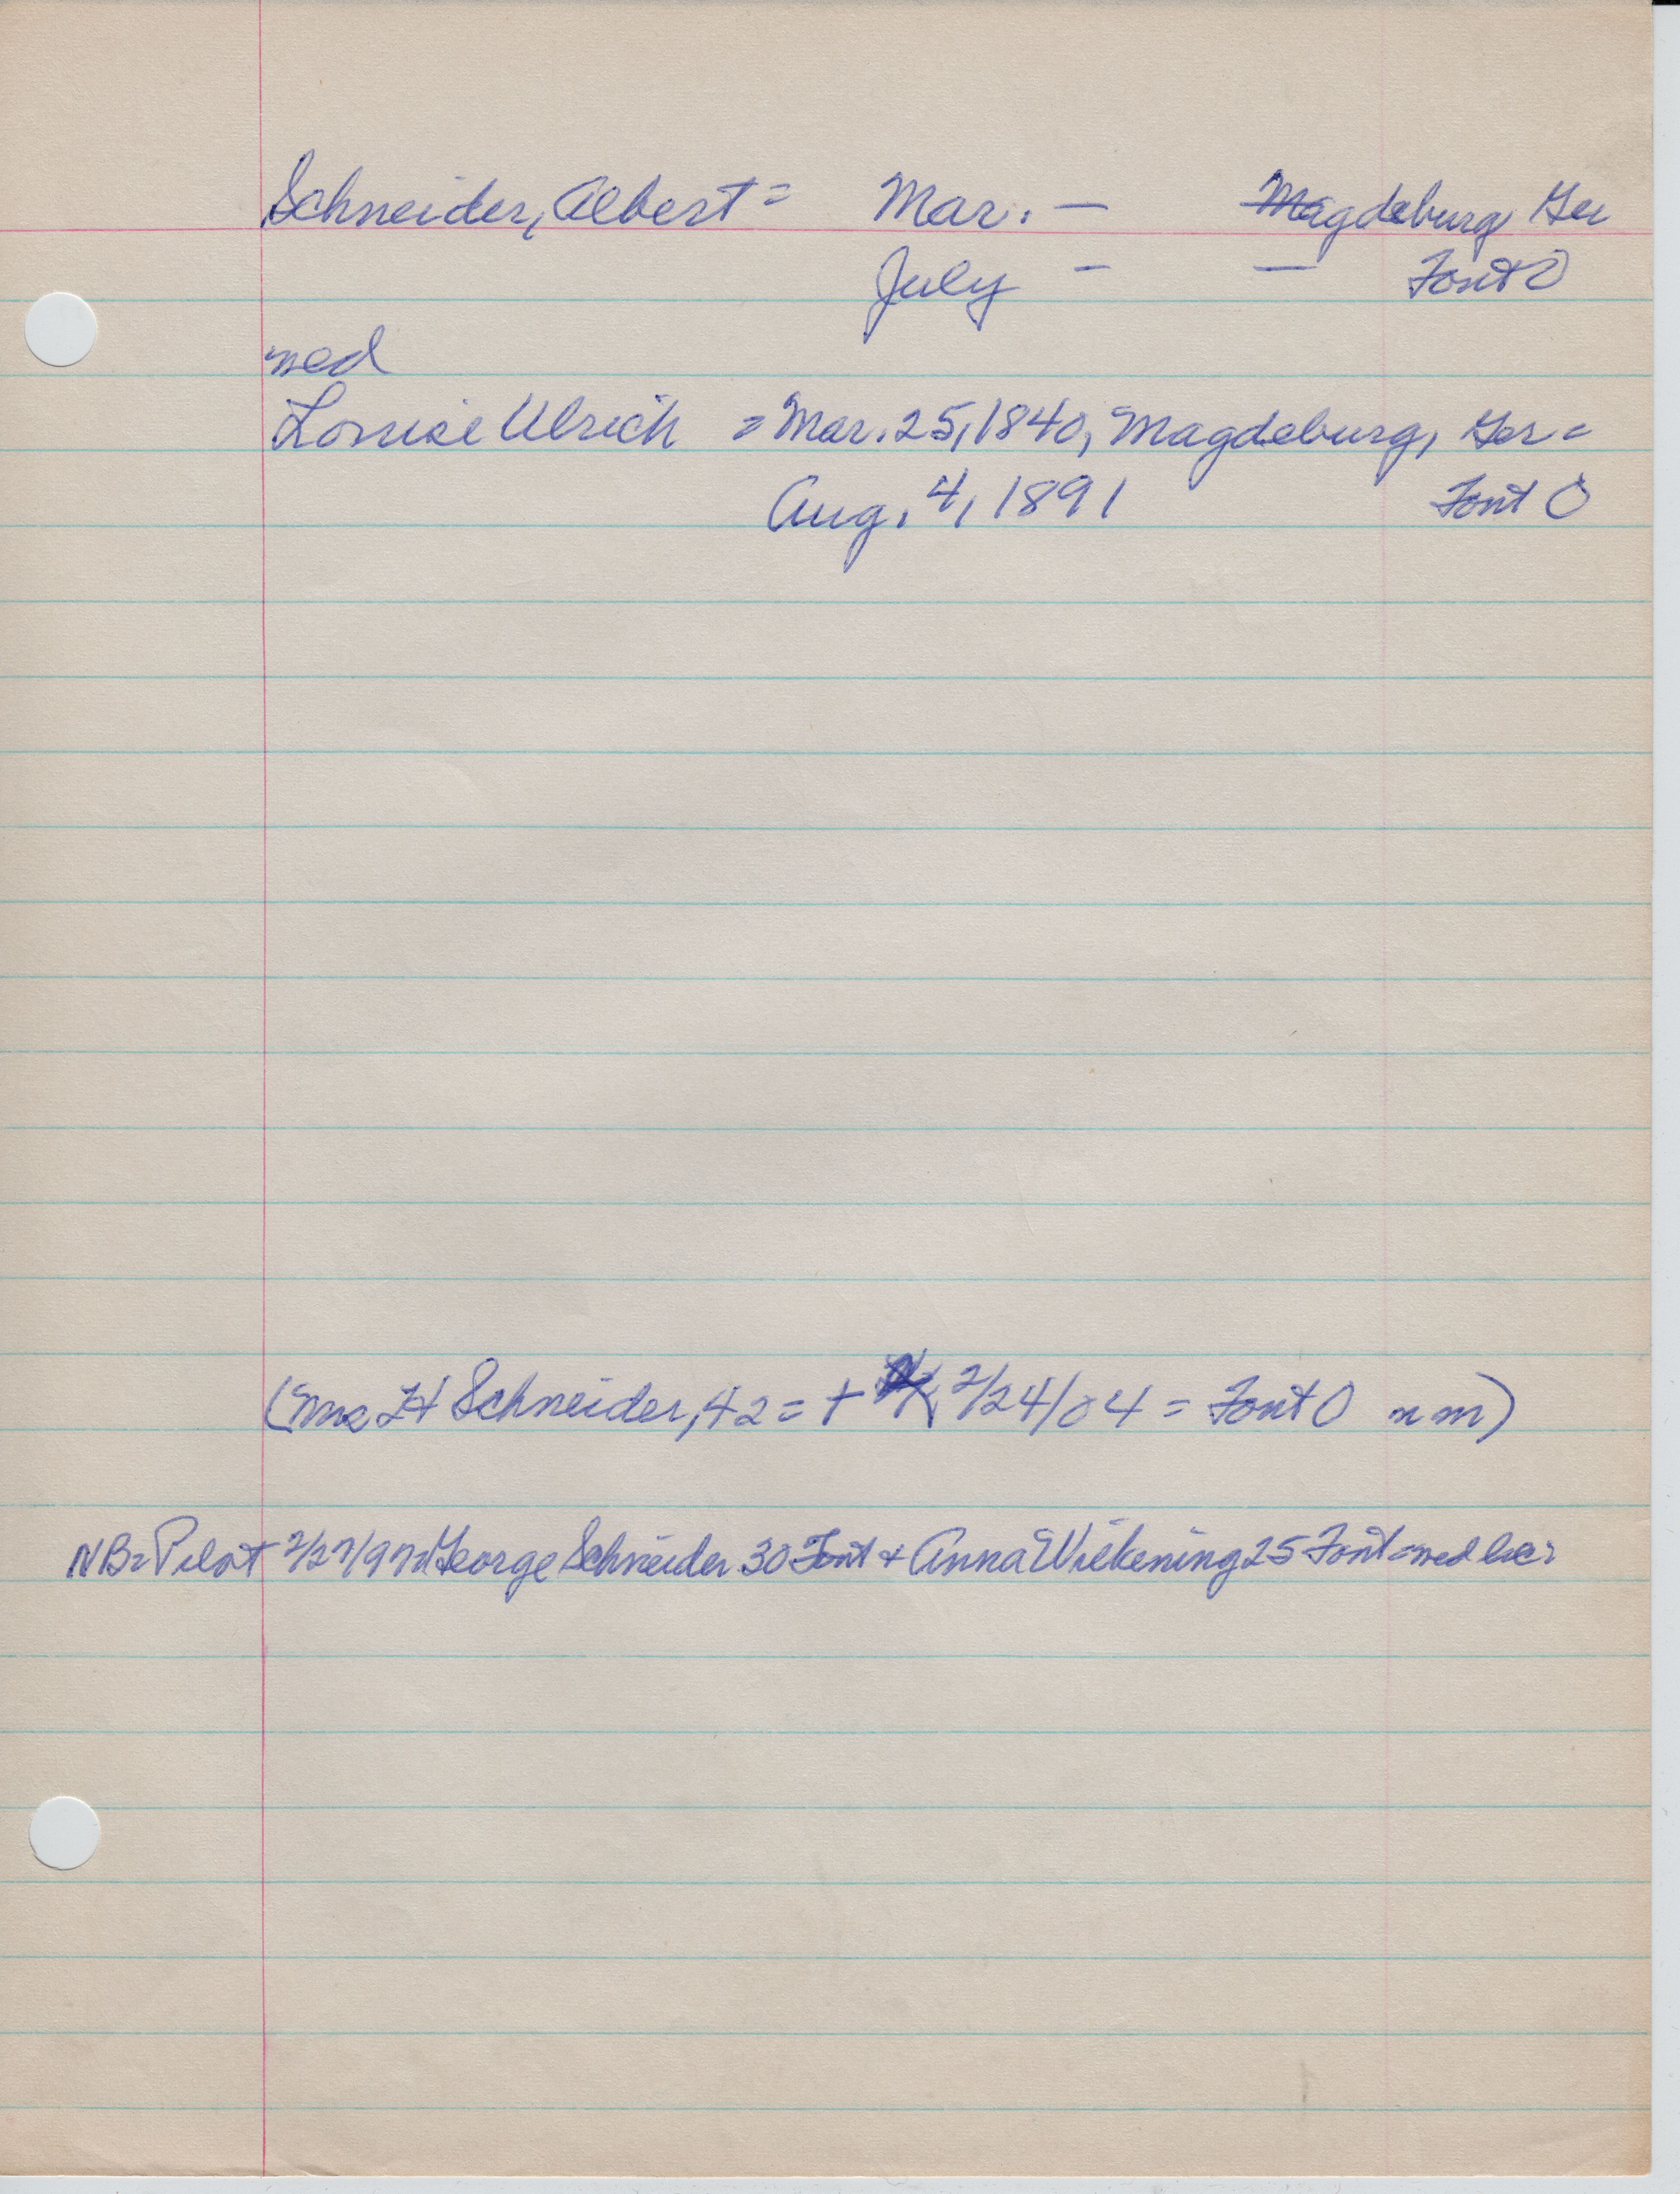 Schneider, Albert = Mar. — Magdeburg Ger
July — — Font O
med
Louise Ulrich = Mar. 25, 1840, Magdeburg, Ger =
Aug. 4, 1891 Font O
(Mrs H Schneider, 42 = + 2/24/04 = Font O n m)
NB = Pilot 2/27/97 = George Schneider 30 Font + Anna Wilkening 25 Font = med lic